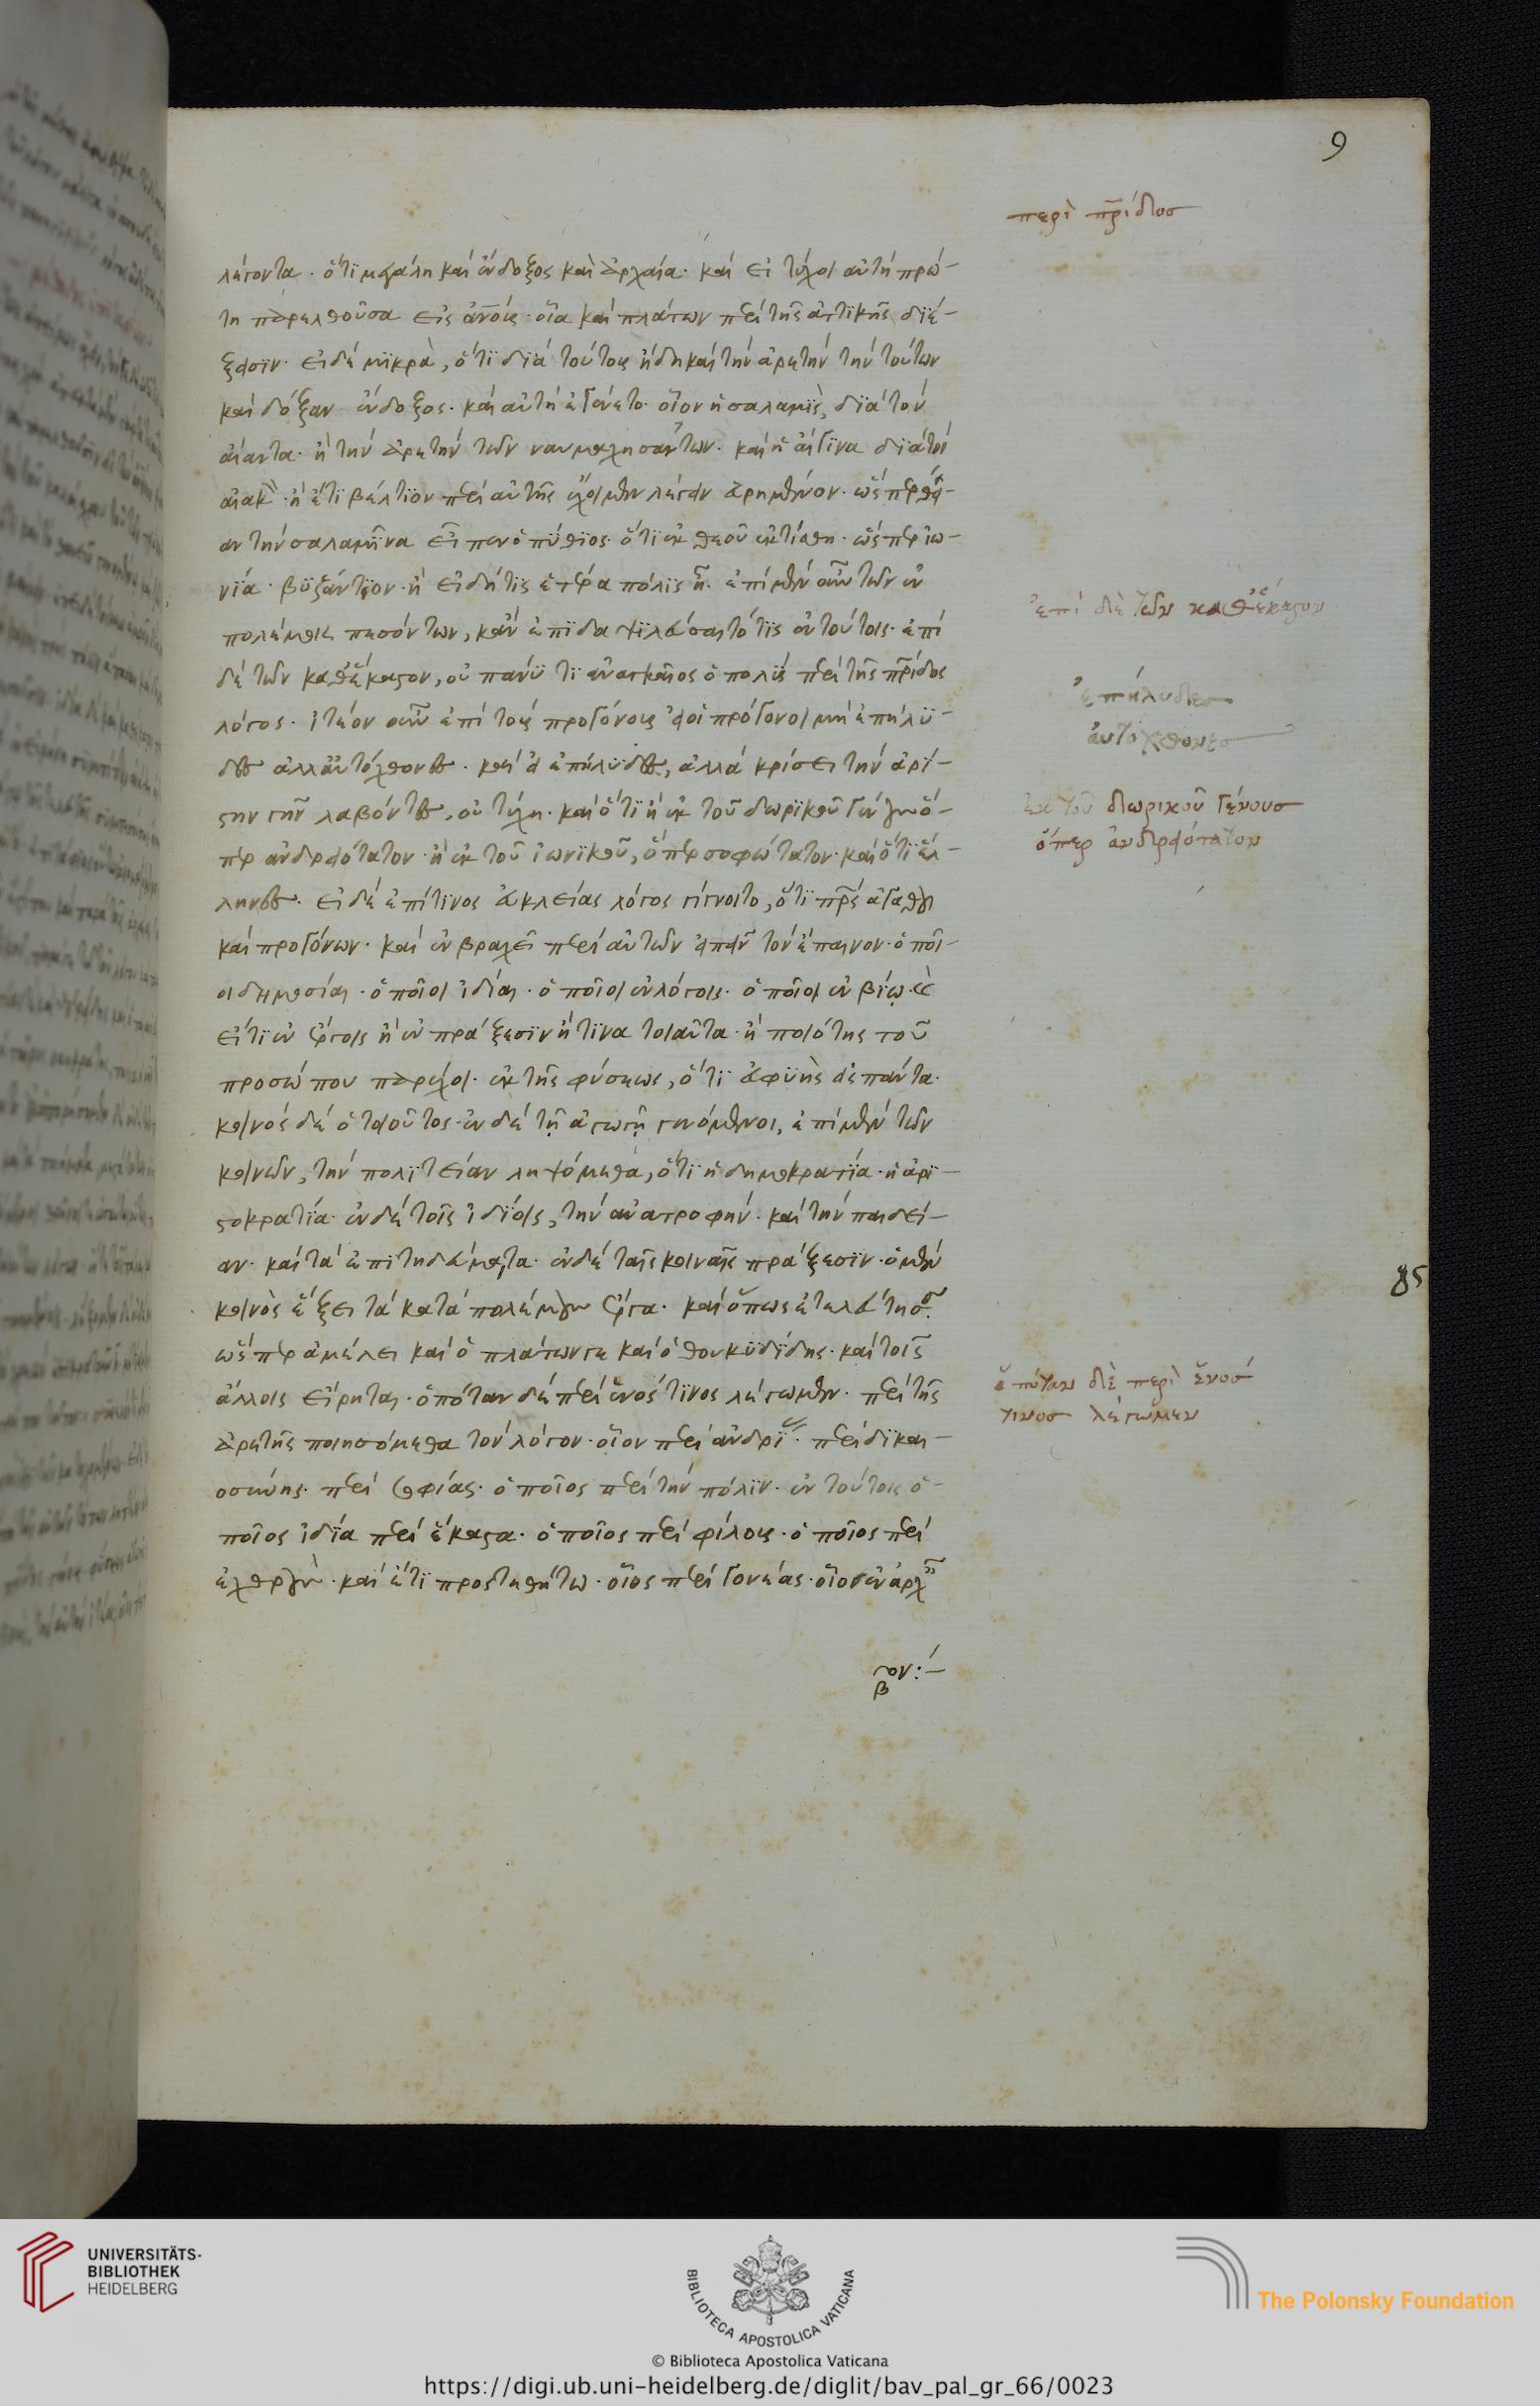 9
περὶ πρίδος
λέγοντα· ὅτι μεγάλη καὶ ἔνδοξος καὶ ἀρχαία· καὶ εἰ τύχοι αὐτὴ πρώ-
τη παρελθοῦσα εἰς ἀνους· οἷα καὶ πλάτων περὶ τῆς ἀττικῆς διέ-
ξεισιν· εἰ δὲ μικρὰ, ὅτι διὰ τούτους ἤδη καὶ τὴν ἀρετὴν τὴν τούτων
καὶ δόξαν ἔνδοξος· καὶ αὐτὴ ἐγένετο· οἷον ἡ σαλαμὶς, διὰ τὸν
αἴαντα· ἢ τὴν ἀρετὴν τῶν ναυμαχησάντων· καὶ ἡ αἴγινα διὰ τὸν
αἰακὸν· ἢ ἔτι βέλτιον περὶ αὐτῆς ἔχοιμεν λέγειν εὑρημένον· ὥσπερ θεί-
αν τὴν σαλαμῖνα εἶπεν ὁ πύθιος· ὅτι ἐκ θεοῦ ἐκτίσθη· ὥσπερ ἰω-
νία· βυζάντιον· ἢ εἰ δή τις ἑτέρα πόλις· ἐπὶ μὲν οὖν τῶν ἐν
πολέμοις πεσόντων, κἂν ἐπιδαψιλεύσαιτό τις ἐν τούτοις· ἐπὶ
δὲ τῶν καθέκαστον, οὐ πάνυ τι ἀναγκαῖος ὁ πολὺς περὶ τῆς πρίδος
λόγος· ἰτέον οὖν ἐπὶ τοὺς προγόνους εἰ οἱ πρόγονοι μὴ ἐπήλυ-
δες ἀλλ' αὐτόχθονες· καὶ εἰ ἐπήλυδες, ἀλλὰ κρίσει τὴν ἀρί-
στην γῆν λαβόντες, οὐ τύχῃ· καὶ ὅτι ἢ ἐκ τοῦ δωρικοῦ γένους ὅ-
περ ἀνδρειότατον· ἢ ἐκ τοῦ ἰωνικοῦ, ὅπερ σοφώτατον· καὶ ὅτι ἕλ-
ληνες· εἰ δὲ ἐπί τινος εὐκλείας λόγος γίγνοιτο, ὅτι πρς ἀγαθοῦ
καὶ προγόνων· καὶ ἐν βραχεῖ περὶ αὐτῶν εἰπεῖν τὸν ἔπαινον· ὁποῖ-
οι δημοσίαι· ὁποῖοι ἰδίαι· ὁποῖοι ἐν λόγοις· ὁποῖοι ἐν βίῳ· καὶ
εἴ τι ἐν ἔργοις ἢ ἐν πράξεσιν ἤ τινα τοιαῦτα· ἡ ποιότης τοῦ
προσώπου παρέχοι· ἐκ τῆς φύσεως, ὅτι εὐφυὴς ἐς πάντα·
κοινὸς δὲ ὁ τοιοῦτος· ἐν δὲ τῇ ἀγωγῇ γενόμενοι, ἐπὶ μὲν τῶν
κοινῶν, τὴν πολιτείαν ληψόμεθα, ὅτι ἡ δημοκρατία· ἡ ἀρι-
στοκρατία· ἐν δὲ τοῖς ἰδίοις, τὴν ἀνατροφήν· καὶ τὴν παιδεί-
αν· καὶ τὰ ἐπιτηδεύματα· ἐν δὲ ταῖς κοιναῖς πράξεσιν· ὁ μὲν
κοινὸς ἕξει τὰ κατὰ πόλεμον ἔργα· καὶ ὅπως ἐτελεύτησαν·
ὥσπερ ἀμέλει καὶ ὁ πλάτων γε καὶ ὁ θουκυδίδης· καὶ τοῖς
ἄλλοις εἴρηται· ὁπόταν δὲ περὶ ἑνός τινος λέγωμεν· περὶ τῆς
ἀρετῆς ποιησόμεθα τὸν λόγον· οἷον περὶ ἀνδρίας· περὶ δικαι-
οσύνης· περὶ σοφίας· ὁποῖος περὶ τὴν πόλιν· ἐν τούτοις ὁ-
ποῖος ἰδία περὶ ἕκαστα· ὁποῖος περὶ φίλους· ὁποῖος περὶ
ἐχθρούς· καὶ ἔτι προστεθήτω· οἷος περὶ γονέας· οἷος ἐν ἀρχαῖς
ἐπὶ δὲ τῶν καθέκαστον
ἐπήλυδες
αὐτόχθονες
ἐκ τοῦ δωρικοῦ γένους
ὅπερ ἀνδρειότατον
85
ὁπόταν δὲ περὶ ἑνός
τινος λέγωμεν
UNIVERSITÄTS-
BIBLIOTHEK
HEIDELBERG
BIBLIOTECA APOSTOLICA VATICANA
The Polonsky Foundation
© Biblioteca Apostolica Vaticana
https://digi.ub.uni-heidelberg.de/diglit/bav_pal_gr_66/0023